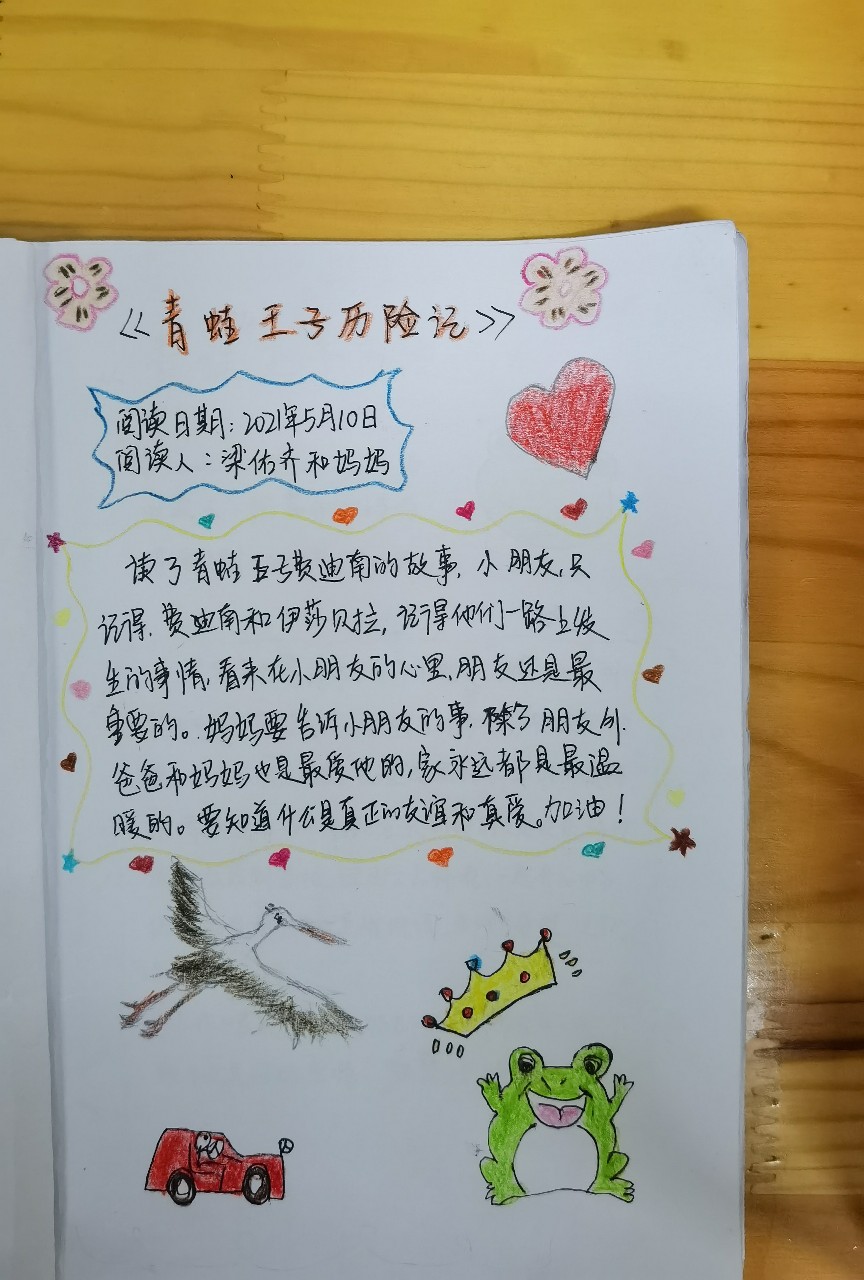 《青蛙王子历险记》
阅读日期：2021年5月10日
阅读人：梁佑齐和妈妈
读了青蛙王子费迪南的故事，小朋友只
记得，费迪南和伊莎贝拉，记得他们一路上发
生的事情，看来在小朋友的心里，朋友还是最
重要的。妈妈要告诉小朋友的事，除了朋友外，
爸爸和妈妈也是最爱他的，家永远都是最温
暖的。要知道什么是真正的友谊和真爱。加油！